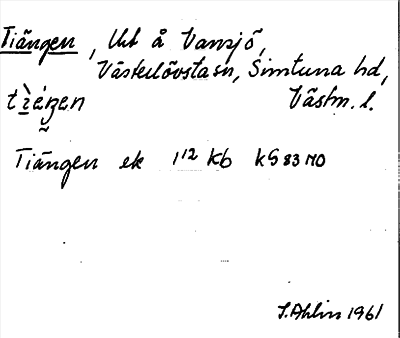 Tiängen, Ukt å Vansjö,
Västerlövsta sn, Simtuna hd,
Västm. l.
Tiängen ek 1¹² kb kS 83 NO
S. Ahlin 1961